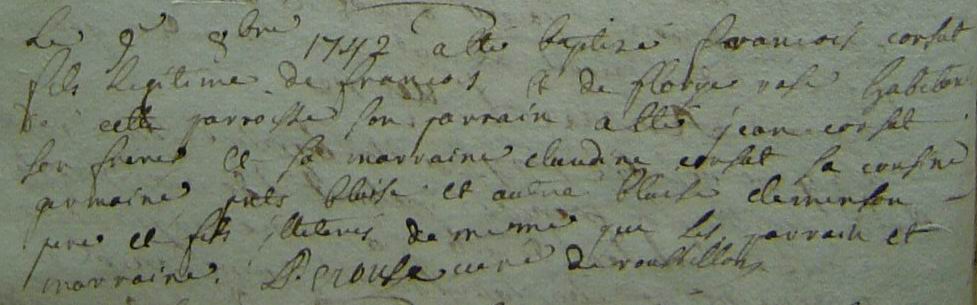 Le 9e 8bre 1742 a été baptisé francois corsat
fils legitime de francois et de florye rose habitan
de cette parroisse son parrain a été jean corsat
son frere et sa marraine claudine corsat sa cousine
germaine pnts blaise et autre blaise clemenson
pere et fils illiteres de meme que les parrain et
marraine. curé de roussillon